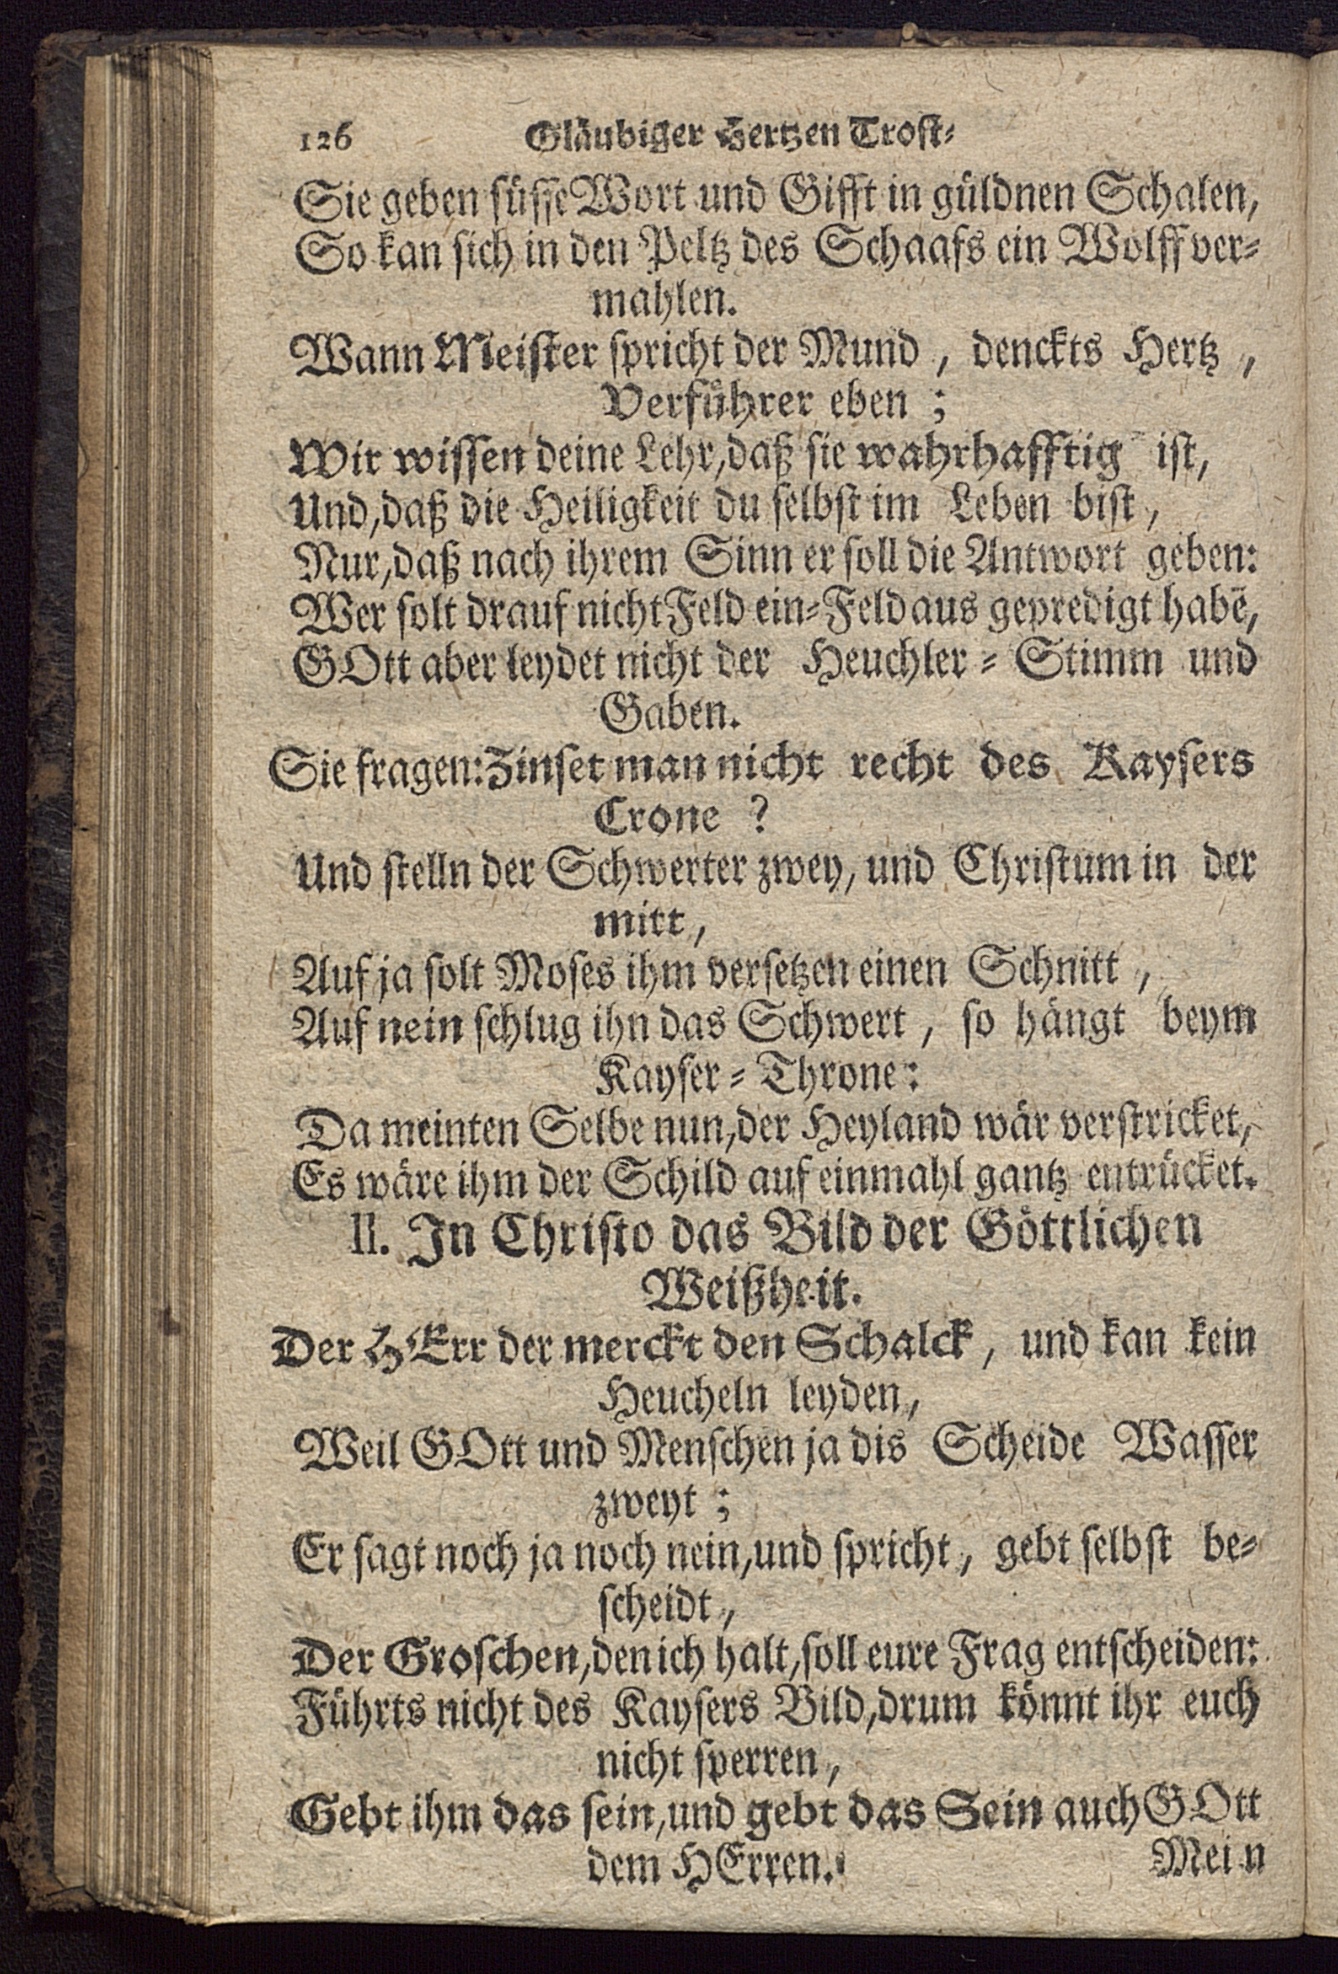 126 Gläubiger Hertzen Trost-
Sie geben süsse Wort und Gifft in güldnen Schalen,
So kan sich in den Peltz des Schaafs ein Wolff ver-
mahlen.
Wann Meister spricht der Mund, denckts Hertz,
Verführer eben;
Wir wissen deine Lehr, daß sie wahrhafftig ist,
Und, daß die Heiligkeit du selbst im Leben bist,
Nur, daß nach ihrem Sinn er soll die Antwort geben:
Wer solt drauf nicht Feld ein-Feld aus gepredigt habē,
GOtt aber leydet nicht der Heuchler-Stimm und
Gaben.
Sie fragen: Zinset man nicht recht des Kaysers
Crone?
Und stelln der Schwerter zwey, und Christum in der
mitt,
Auf ja solt Moses ihm versetzen einen Schnitt,
Auf nein schlug ihn das Schwert, so hängt beym
Kayser-Throne:
Da meinten Selbe nun, der Heyland wär verstricket,
Es wäre ihm der Schild auf einmahl gantz entrücket.
II. In Christo das Bild der Göttlichen
Weißheit.
Der HErr der merckt den Schalck, und kan kein
Heucheln leyden,
Weil GOtt und Menschen ja dis Scheide Wasser
zweyt;
Er sagt noch ja noch nein, und spricht, gebt selbst be-
scheidt,
Der Groschen, den ich halt, soll eure Frag entscheiden:
Führts nicht des Kaysers Bild, drum könnt ihr euch
nicht sperren,
Gebt ihm das sein, und gebt das Sein auch GOtt
dem HErren.
Mein